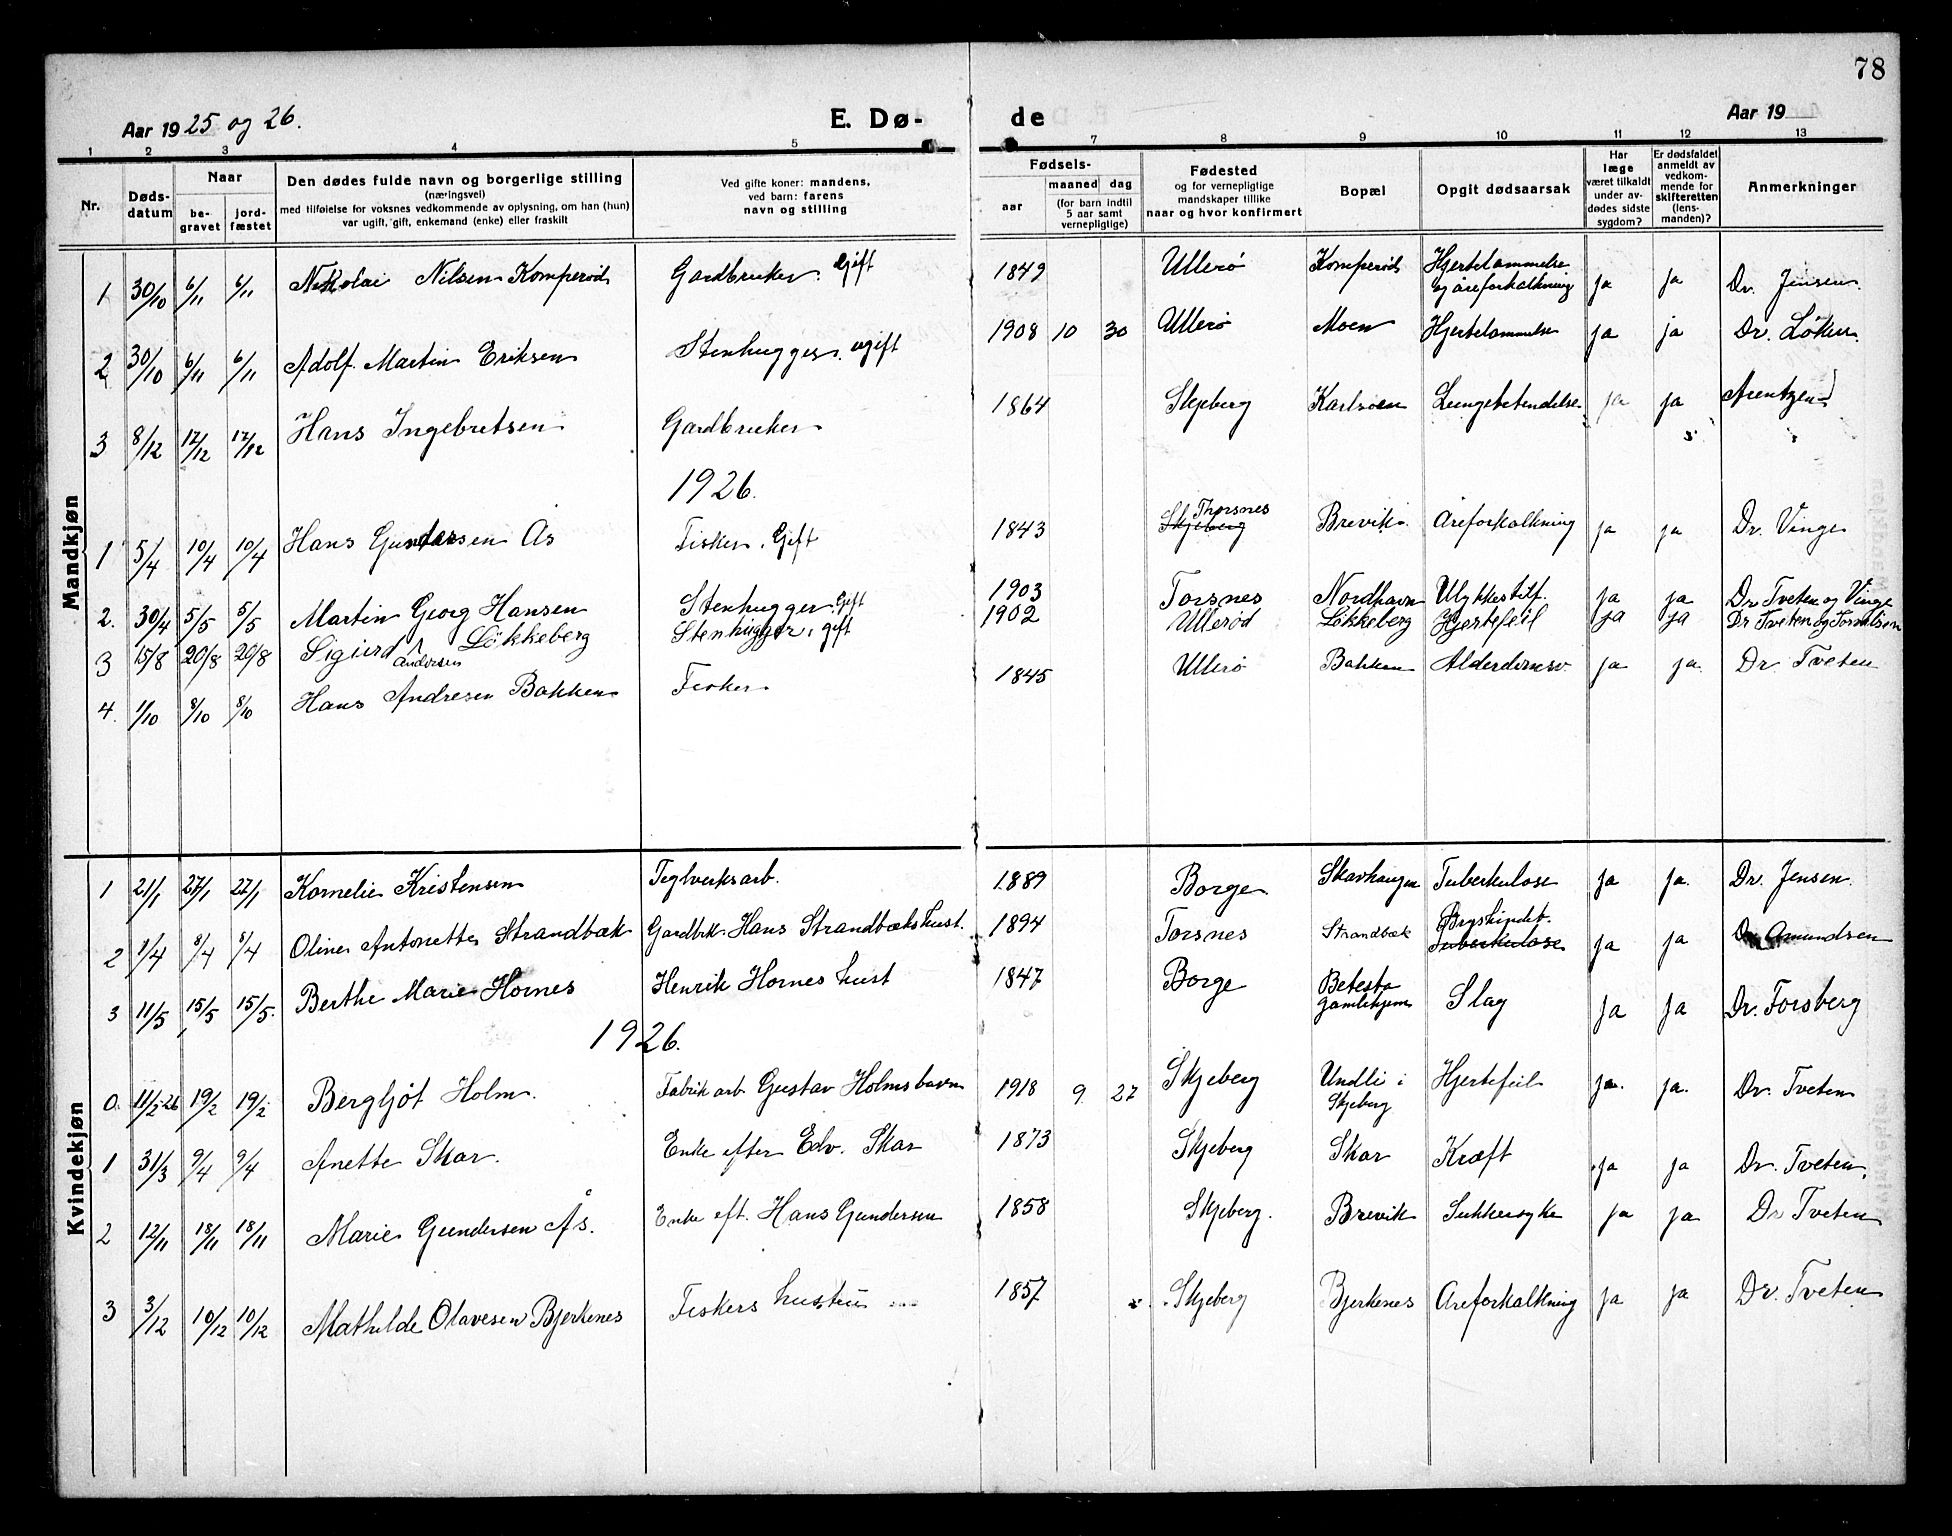 78
Aar 1925 og 26.
E. Dø-
de
Aar 19
1 2 3 4 5 7 8 9 10 11 12 13
Nr.
Døds-
datum
Naar
be-
gravet
jord-
fæstet
Den dødes fulde navn og borgerlige stilling
(næringsvei)
med tilføielse for voksnes vedkommende av oplysning, om han (hun)
var ugift, gift, enkemand (enke) eller fraskilt
Ved gifte koner: mandens,
ved barn: farens
navn og stilling
Fødsels-
aar
maaned
dag
(for barn indtil
5 aar samt
vernepligtige)
Fødested
og for vernepligtige
mandskaper tillike
naar og hvor konfirmert
Bopæl
Opgit dødsaarsak
Har
læge
været tilkaldt
under av-
dødes sidste
sygdom?
Er dødsfaldet
anmeldt av
vedkom-
mende for
skifteretten
(lens-
manden)?
Anmerkninger
Mandkjøn
1 30/10 6/11 6/11 Nikolai Nilsen Komperød Gardbruker. Gift 1849 Ullerø Komperød Hjertelammelse og åreforkalkning ja ja Dr. Jensen.
2 30/10 6/11 6/11 Adolf Martin Eriksen Stenhugger. ugift 1908 10 30 Ullerø Moen Hjertelammelse ja ja Dr. Löken.
3 8/12 12/12 12/12 Hans Ingebretsen Gardbruker 1864 Skjeberg Lungebetendelse ja ja Arentzen
1926.
1 5/4 10/4 10/4 Hans Gundersen Ås Fisker. Gift 1843 Skjeberg Thorsnes Brevik Åreforkalkning ja ja Dr. Vinge
2. 30/4 5/5 5/5 Martin Georg Hansen Stenhugger. Gift 1903 Torsnes Nordhavn Ulykkestilf. ja ja Dr Tveten og Vinge
3 15/8 20/8 20/8 Sigurd Andersen Lökkeberg Stenhugger, gift 1902 Ullerød Lökkeberg Hjertefeil ja ja Dr Tveten og
4. 1/10 8/10 8/10 Hans Andresen Bakken Fisker 1845 Ullerø Bakken Alderdomsv. ja ja. Dr. Tveten
Kvindekjøn
1 21/1 27/1 27/1 Kornelie Kristensen Teglverksarb. 1889 Borge Skavhaugen Tuberkulose ja ja. Dr. Jensen.
2 1/4 8/4 8/4 Oline Antonette Strandbæk Gardbr. Hans Strandbæks hust. 1894 Torsnes Strandbæk Brysthindeb. Tuberkulose ja ja Dr Amundsen
3 11/5 15/5 15/5. Berthe Marie Hornes Henrik Hornes hust 1847 Borge Betesta gamlehjem Slag ja ja Dr. Forsberg
1926.
0. 11/2-26 19/2 19/2 Bergljot Holm. Fabrik arb Gustav Holms barn 1918 9 27 Skjeberg Undli i Skjeberg Hjertefeil ja. ja. Dr. Tveten
1 31/3 9/4 9/4 Anette Skar. Enke efter Edv. Skar 1873 Skjeberg Skar Kræft ja ja Dr. Tveten.
2 12/11 18/11 18/11 Marie Gundersen Ås. Enke eft. Hans Gundersen 1858 Skjeberg. Brevik Sukkersyke ja ja Dr Tveten
3 3/12 10/12 10/12 Mathilde Olavesen Bjerkenes Fiskers hustru 1857 Skjeberg Bjerkenes Åreforkalkning ja ja Dr. Tveten